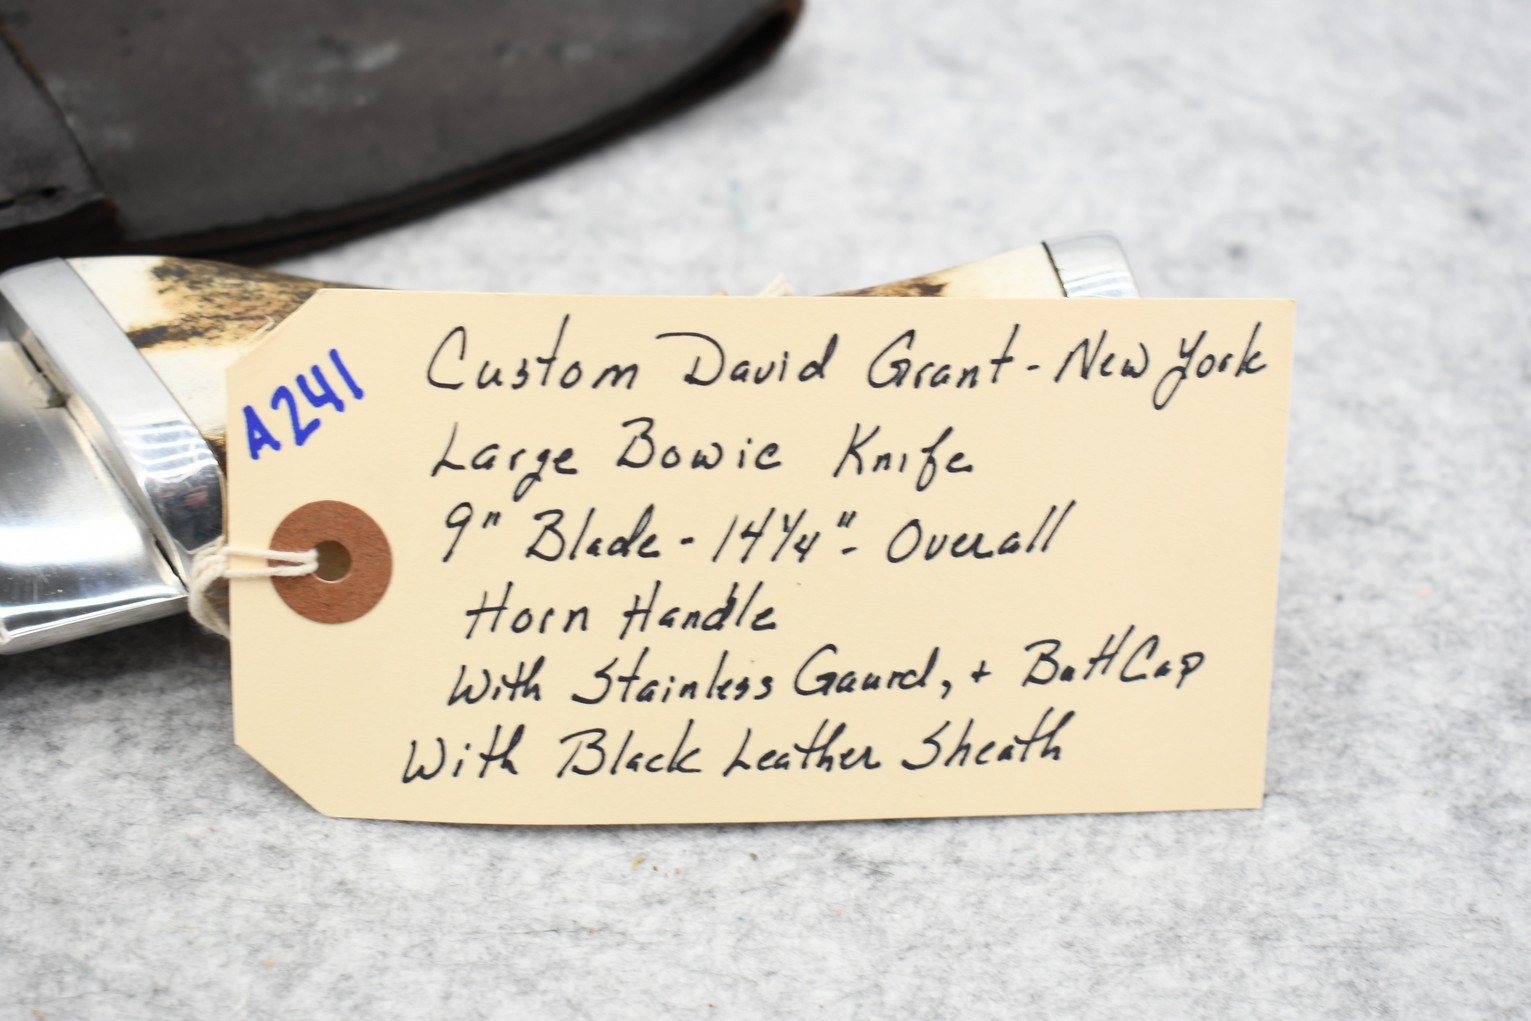 A241
Custom David Grant - New York
Large Bowie Knife
9" Blade - 14 1/4" - Overall
Horn Handle
With Stainless Gaurd, + Butt Cap
With Black Leather Sheath